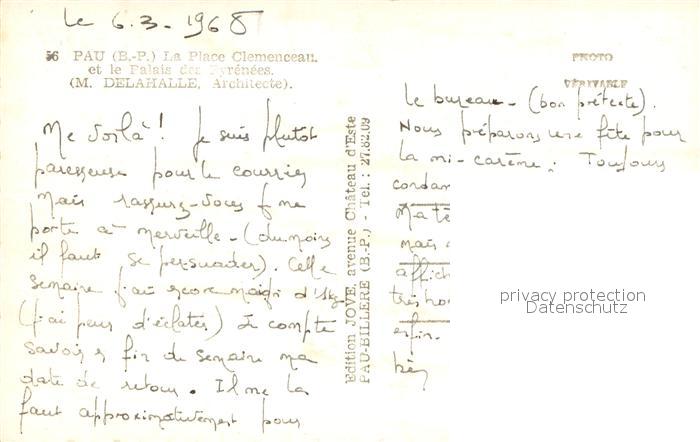 le 6.3-1968
56 PAU (B.-P.) La Place Clemenceau
et le Palais des Pyrénées.
(M. DELAHALLE, Architecte).
Me voilà! Je suis plutôt
paresseuse pour le courrier
mais rassurez-vous je me
porte à merveille - (du moins
il faut se persuader). Cette
semaine j'ai encore maigri d'1kg
(j'ai peur d'éclater) Je compte
savoir fin de semaine ma
date de retour. Il me la
faut approximativement pour
Edition JOVE, avenue Château d'Este
PAU-BILLERE (B.-P.) - Tel.: 27.82.09
PHOTO
VÉRITABLE
le bureau - (bon prétexte).
Nous préparons une fête pour
la mi-carême: Toujours
cordon
Ma té
mais
affich
très ho
enfin.
privacy protection
Datenschutz